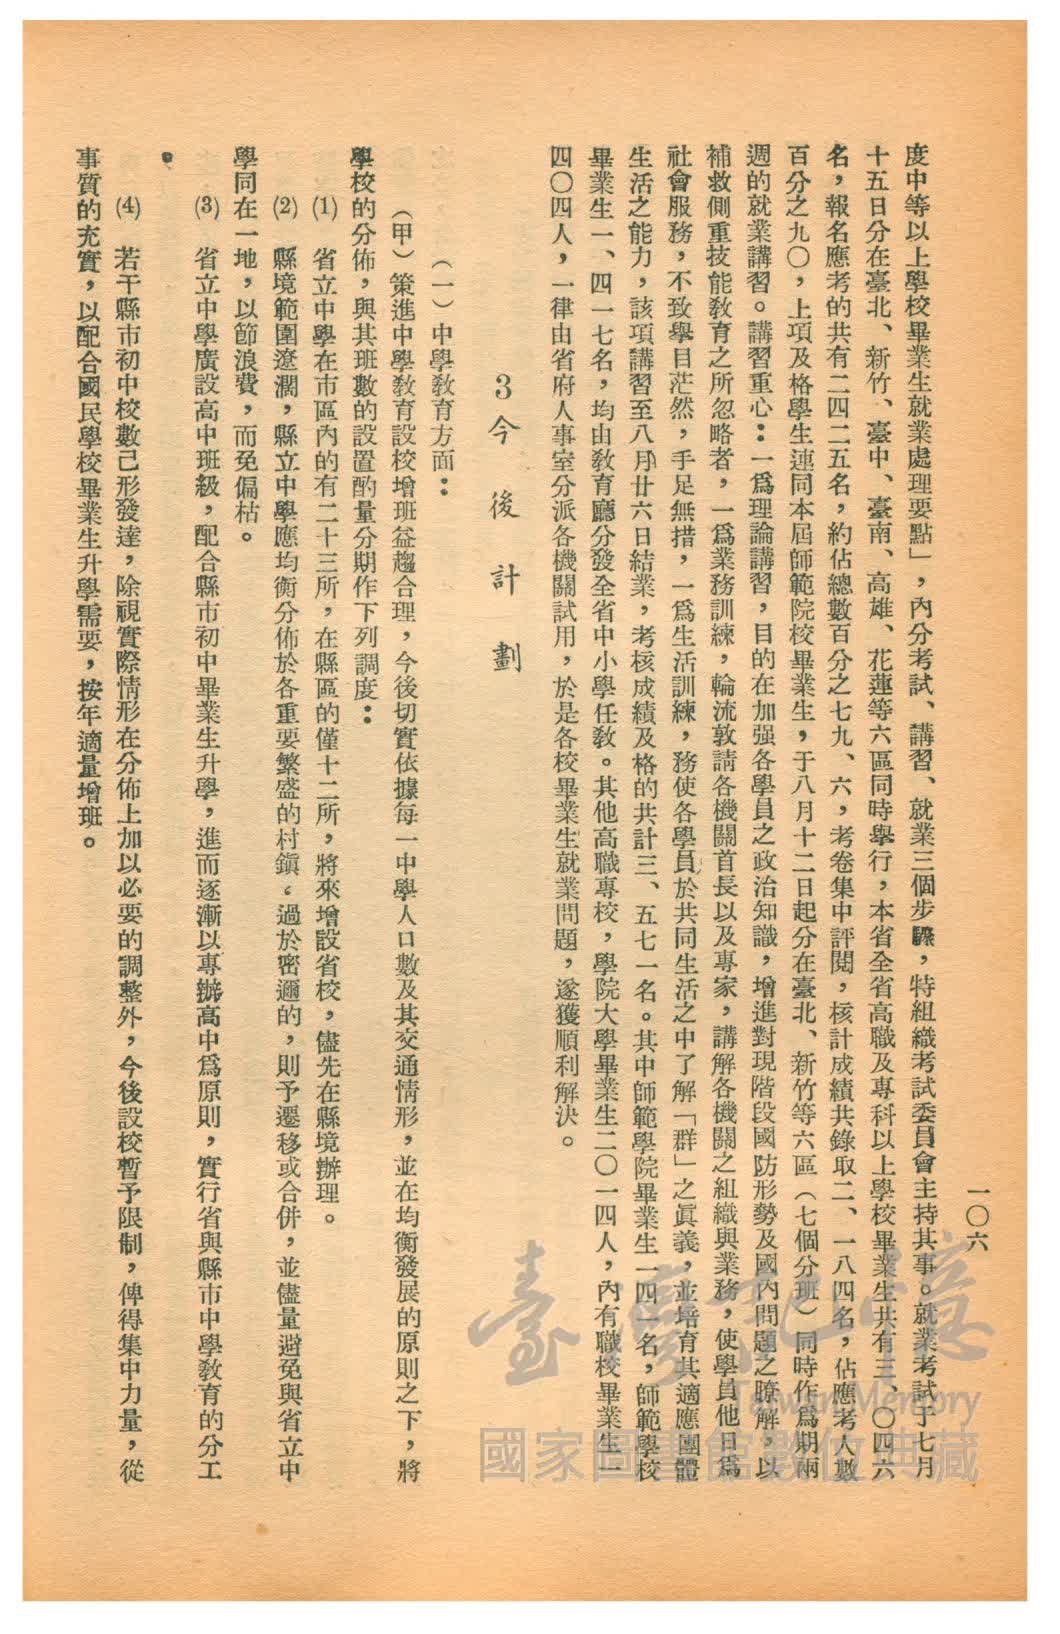 一〇六
度中等以上學校畢業生就業處理要點」，內分考試、講習、就業三個步驟，特組織考試委員會主持其事。就業考試于七月
十五日分在臺北、新竹、臺中、臺南、高雄、花蓮等六區同時舉行，本省全省高職及專科以上學校畢業生共有三、〇四六
名，報名應考的共有二四二五名，約佔總數百分之七九、六，考卷集中評閱，核計成績共錄取二、一八四名，佔應考人數
百分之九〇，上項及格學生連同本屆師範院校畢業生，于八月十二日起分在臺北、新竹等六區（七個分班）同時作爲期兩
週的就業講習。講習重心：一爲理論講習，目的在加强各學員之政治知識，增進對現階段國防形勢及國內問題之瞭解，以
補救側重技能敎育之所忽略者，一爲業務訓練，輪流敦請各機關首長以及專家，講解各機關之組織與業務，使學員他日爲
社會服務，不致舉目茫然，手足無措，一爲生活訓練，務使各學員於共同生活之中了解「群」之眞義，並培育其適應團體
生活之能力，該項講習至八月廿六日結業，考核成績及格的共計三、五七一名。其中師範學院畢業生一四一名，師範學校
畢業生一、四一七名，均由敎育廳分發全省中小學任敎。其他高職專校，學院大學畢業生二〇一四人，內有職校畢業生一
四〇四人，一律由省府人事室分派各機關試用，於是各校畢業生就業問題，遂獲順利解決。
3今後計劃
（一）中學敎育方面：
（甲）策進中學敎育設校增班益趨合理，今後切實依據每一中學人口數及其交通情形，並在均衡發展的原則之下，將
學校的分佈，與其班數的設置酌量分期作下列調度：
(1) 省立中學在市區內的有二十三所，在縣區的僅十二所，將來增設省校，儘先在縣境辦理。
(2) 縣境範圍遼濶，縣立中學應均衡分佈於各重要繁盛的村鎭。過於密邇的，則予遷移或合併，並儘量避免與省立中
學同在一地，以節浪費，而免偏枯。
(3) 省立中學廣設高中班級，配合縣市初中畢業生升學，進而逐漸以專辦高中爲原則，實行省與縣市中學敎育的分工
(4) 若干縣市初中校數已形發達，除視實際情形在分佈上加以必要的調整外，今後設校暫予限制，俾得集中力量，從
事質的充實，以配合國民學校畢業生升學需要，按年適量增班。
臺灣記憶
Taiwan Memory
國家圖書館數位典藏